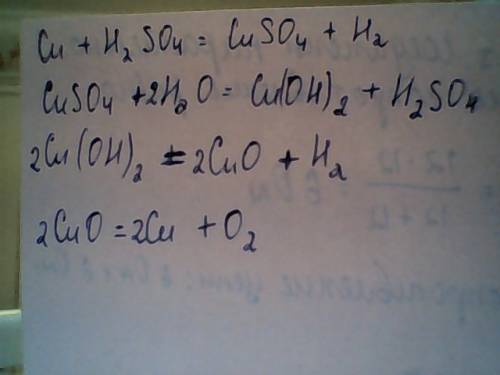 Cu + H₂SO₄ = CuSO₄ + H₂
CuSO₄ + 2H₂O = Cu(OH)₂ + H₂SO₄
2Cu(OH)₂ = 2CuO + H₂
2CuO = 2Cu + O₂